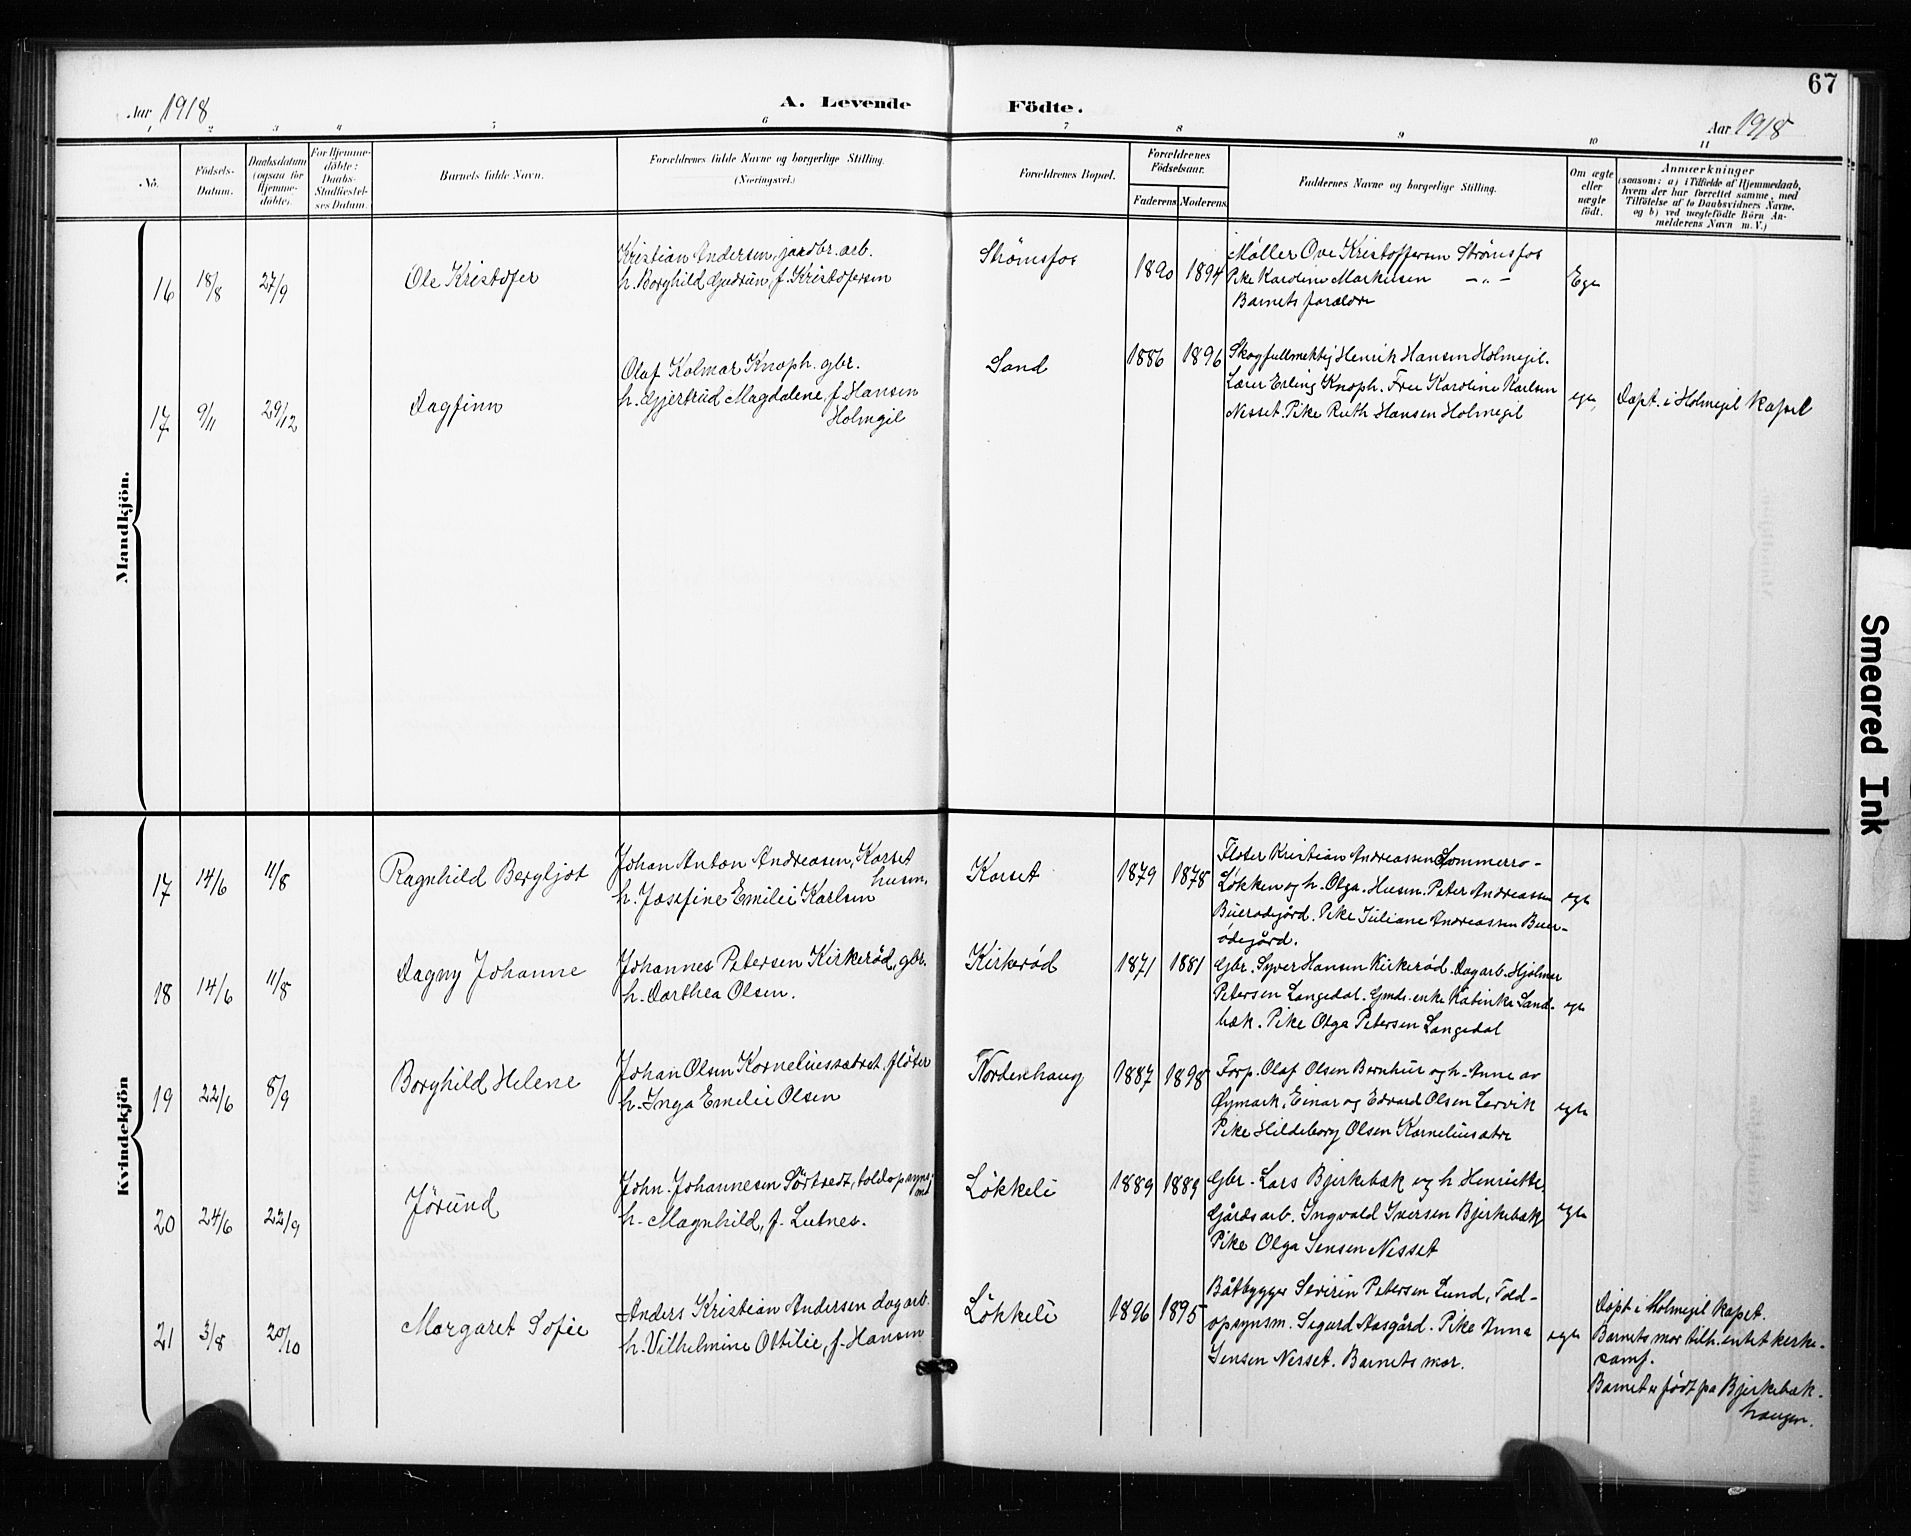 67
Aar 1918
A. Levende Födte.
Aar 1918
1 2 3 4 5 6 7 8 9 10 11
No.
Födsels-
Datum.
Daabsdatum
(ogsaa for
Hjemme-
döbte).
For Hjemme-
döbte:
Daabs-
Stadfæstel-
ses Datum.
Barnets fulde Navn.
Forældrenes fulde Navne og borgerlige Stilling.
(Næringsvei.)
Forældrenes Bopæl.
Forældrenes
Födselsaar.
Faderens Moderens
Faddernes Navne og borgerlige Stilling.
Om ægte
eller
uægte
födt.
Anmærkninger
(saasom: a) i Tilfælde af Hjemmedaab,
hvem der har forrettet samme, med
Tilföielse af to Daabsvidners Navne,
og b) ved uægtefödte Börn An-
melderens Navn m. V.)
Mandkjön.
16 18/8 27/9 Ole Kristofer
Kristian Andersen, jordbr. arb.
h. Borghild Gudrun, f. Kristofersen
Strömsfos 1890 1894
Møller Ove Kristoffersen Strömsfos
Pike Karoline Markusen —"—
Barnets forældre
Egte
17 9/11 29/12 Dagfinn
Olaf Kolmar Knoph. gbr.
h. Gjertrud Magdalene, f. Hansen
Holmgil
Sand 1886 1896
Skogfullmektig Henrik Hansen Holmegil.
Lærer Erling Knoph. Frue Karoline Karlsen
Nesset. Pike Ruth Hansen Holmegil
egte,
Døpt i Holmegil kapel
Kvindekjön
17 14/6 11/8 Ragnhild Bergljot
Johan Anton Andreasen, Korset
husm.
h. Josefine Emilie Karlsen
Korset 1879 1878
Fløter Kristian Andreassen Sommerro-
Løkken og h. Olga. Husm. Peter Andreassen
Buerødegård. Pike Juliane Andreassen Buer-
ödegård.
egte
18 14/6 11/8 Dagny Johanne
Johannes Petersen Kirkerød, gbr.
h. Dorthea Olsen.
Kirkerød 1871 1881
Gbr. Syver Hansen Kirkerød. Dagarb. Hjalmar
Petersen Langedal. Gmds. enke Katinka Sand-
bæk. Pike Olga Petersen Langedal
egte
19 22/6 8/9 Borghild Helene
Johan Olsen Korneliussætret, fløter
h. Inga Emilie Olsen
Nordenhaug 1887 1898
Forp. Olaf Olsen Bernhus og h. Anne av
Øymark, Einar og Edvard Olsen Lervik
Pike Hildeborg Olsen Korneliusætre
egte
20 24/6 22/9 Jörund
John Johannesen Sörtvedt, toldopsyns-
md
h. Magnhild, f. Lutnes.
Løkkeli 1889 1889
Gbr. Lars Bjerkebæk og h Henriette,
Gårdsarb. Ingvald Iversen Bjerkebæk
Pike Olga Jensen Nesset
egte
21 3/8 20/10 Margaret Sofie
Anders Kristian Andersen dagarb.
h. Vilhelmine Ottilie, f. Hansen
Løkkeli 1896 1895
Båtbygger Severin Petersen Lund, Told-
opsynsm. Sigurd Aasgård. Pike Anna
Jensen Nesset. Barnets mor.
egte
Døpt i Holmegil kapel.
Barnets mor tilh. entet kirke-
samf.
Barnet er født på Bjerkebæk-
haugen.
Smeared Ink